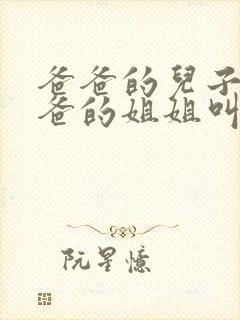 爸爸的兒子
爸的姐姐叫
阮星憶